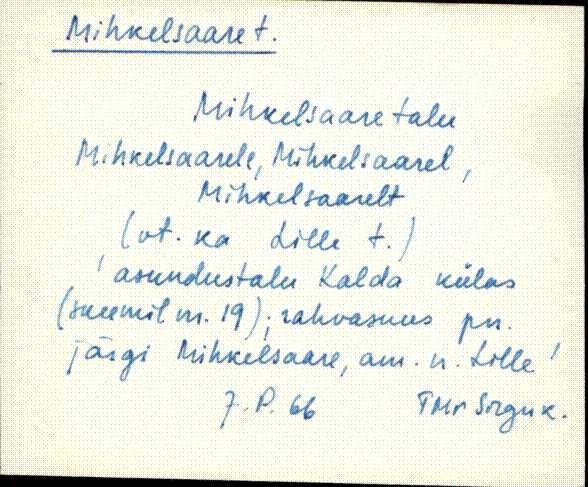 Mihkelsaare t.
Mihkelsaare talu
Mihkelsaarele, Mihkelsaarel,
Mihkelsaarelt
(vt. ka Lille t.)
'asundustalu Kalda külas
(skeemil nr. 19); rahvasuus pn.
järgi Mihkelsaare, am. n. Lille'
7. P. 66